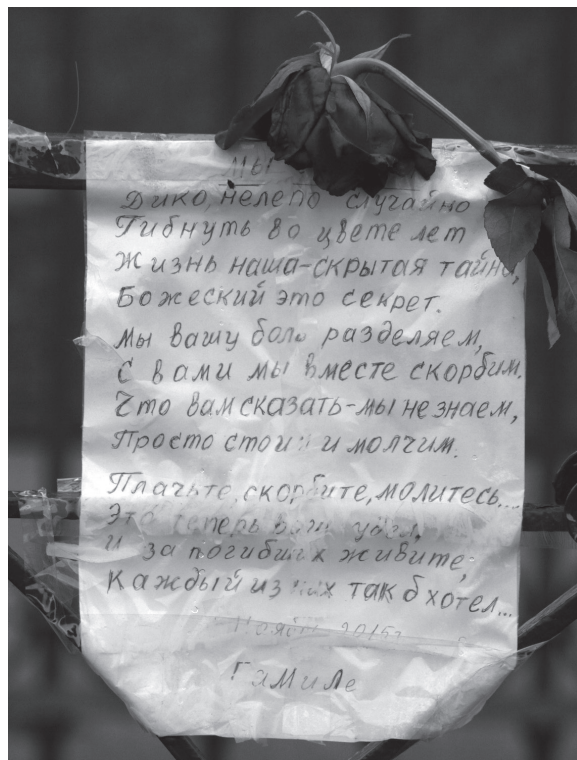 Мы
Дико, нелепо случайно
Гибнуть во цвете лет
Жизнь наша-скрытая тайна,
Божеский это секрет.
Мы вашу боль разделяем,
С вами мы вместе скорбим.
Что вам сказать-мы не знаем,
Просто стоим и молчим.
Плачьте, скорбите, молитесь...
Это теперь ваш удел,
и за погибших живите,
Каждый из них так б хотел...
Ноябрь 2015г
ГаМиЛе